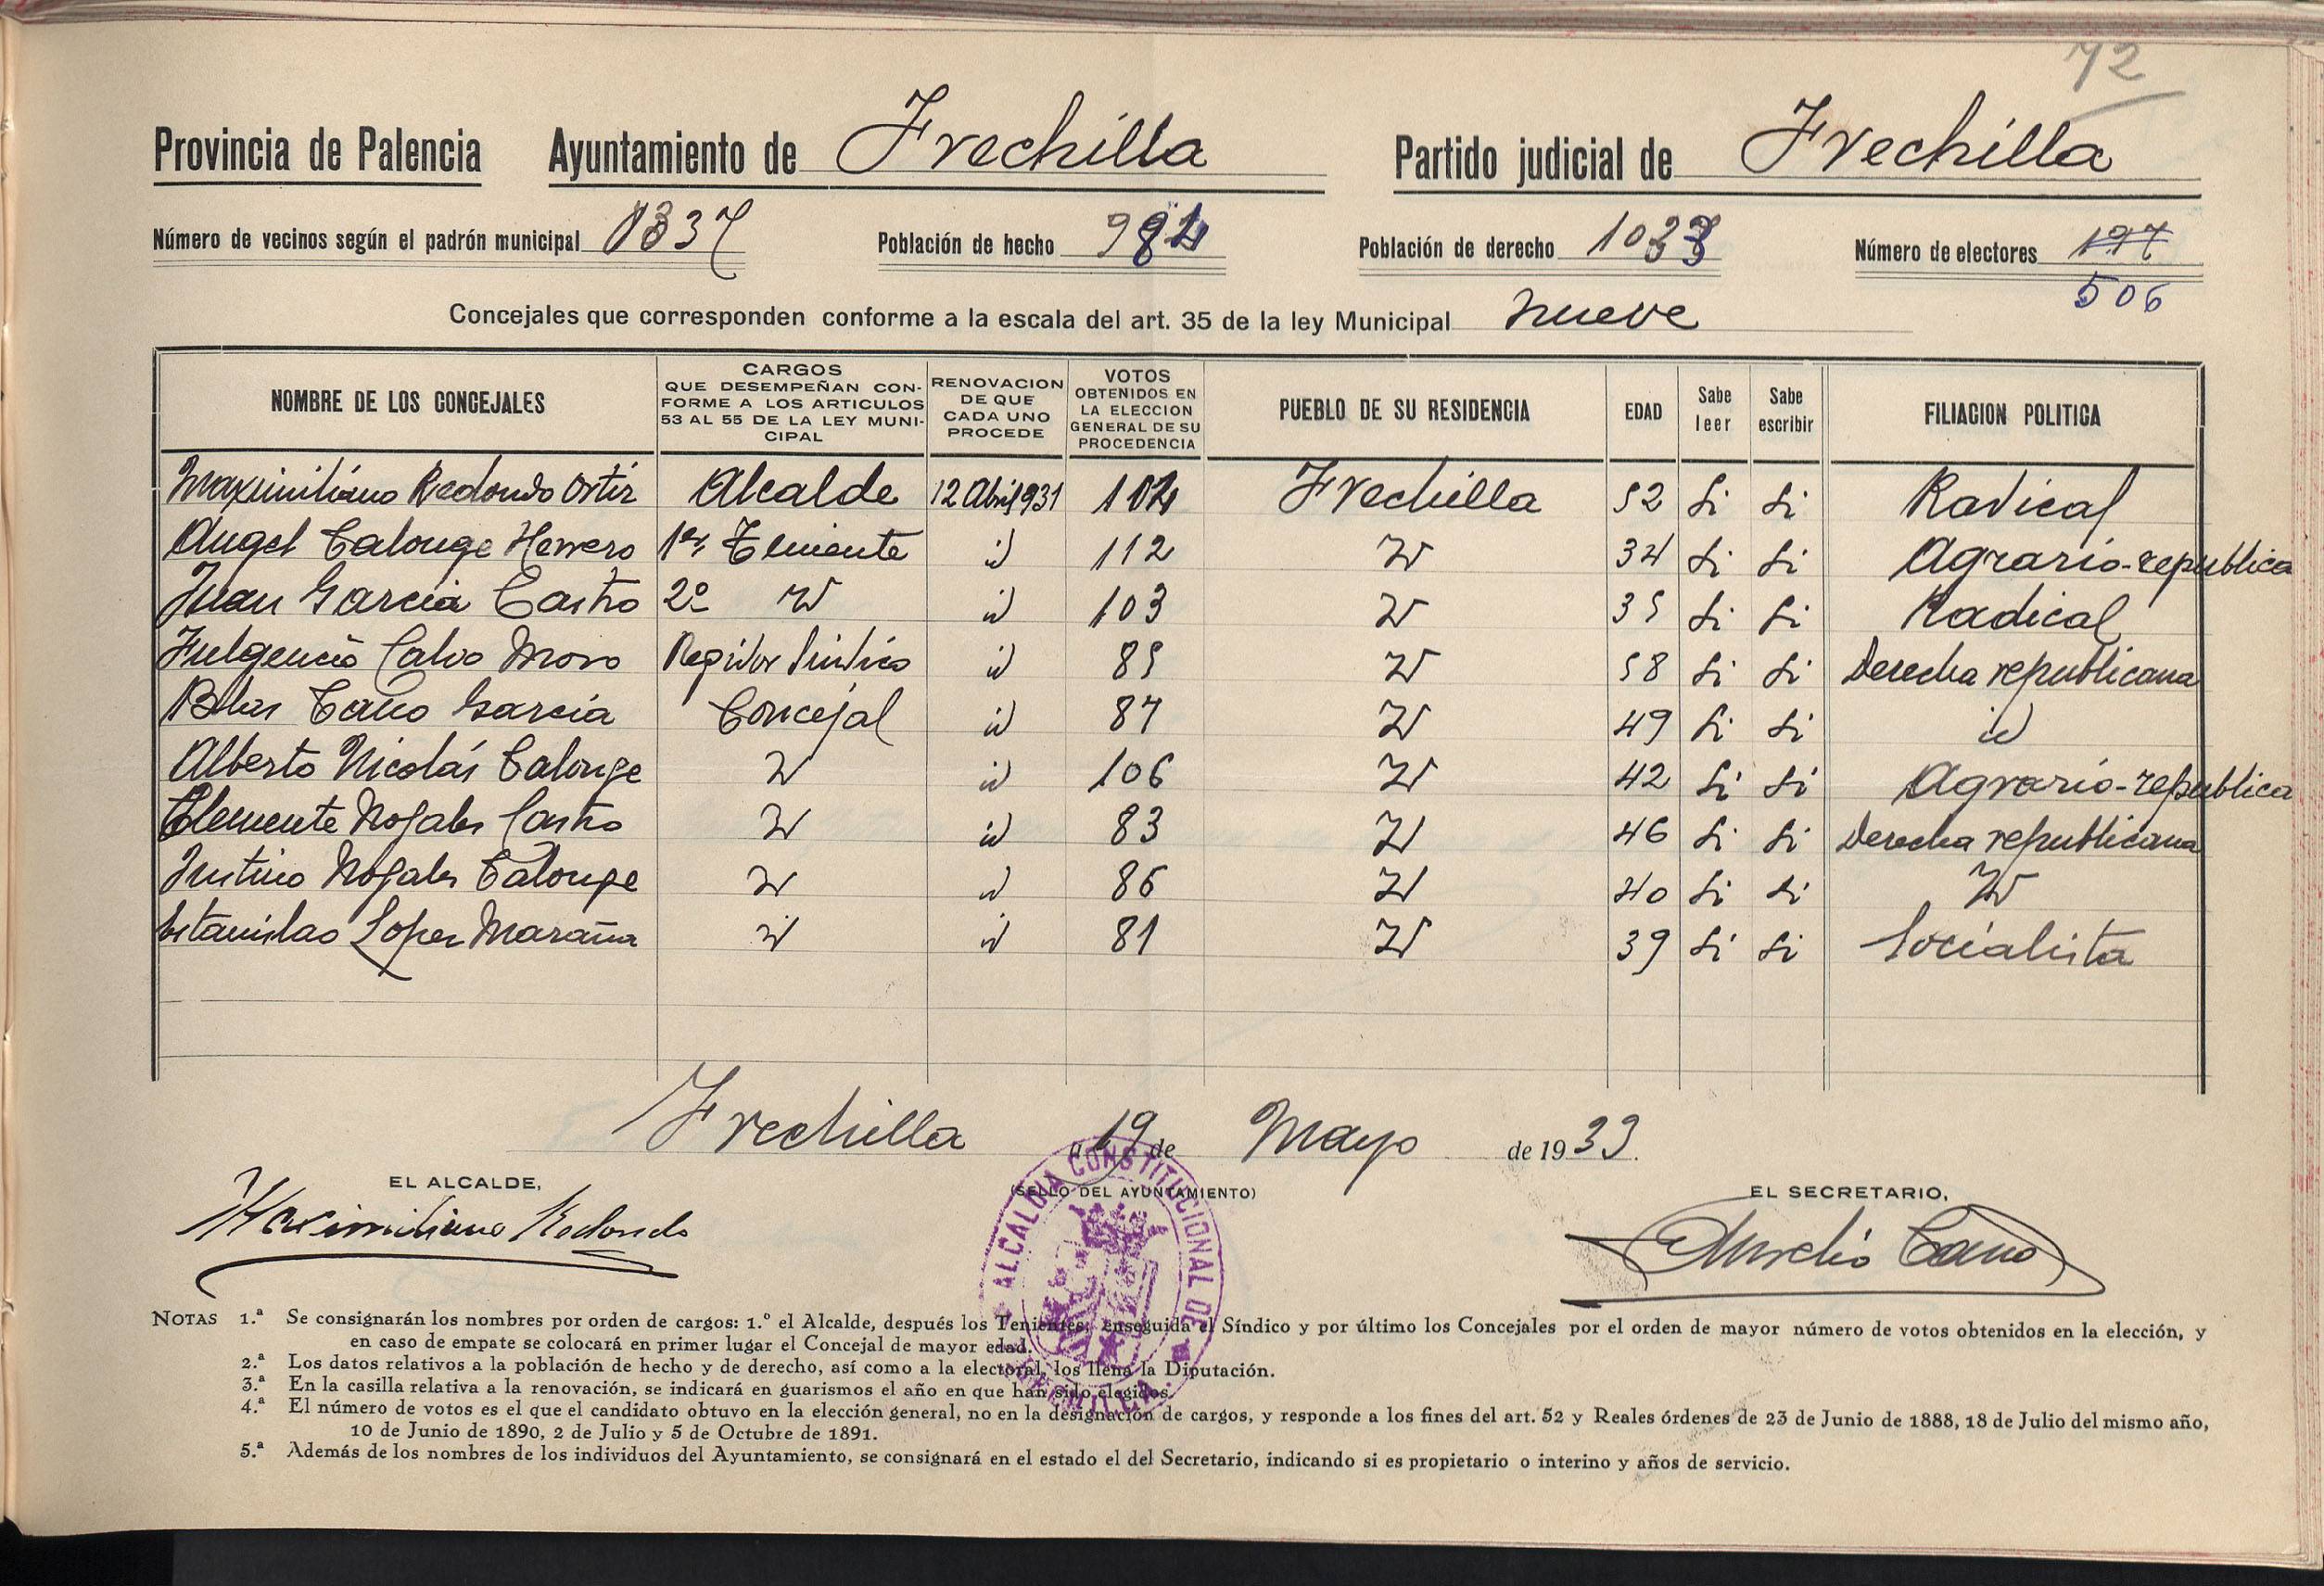 72
Provincia de Palencia Ayuntamiento de Frechilla Partido judicial de Frechilla
Número de vecinos según el padrón municipal Población de hecho Población de derecho Número de electores 197
506
Concejales que corresponden conforme a la escala del art. 35 de la ley Municipal nueve
NOMBRE DE LOS CONCEJALES
CARGOS
QUE DESEMPEÑAN CON-
FORME A LOS ARTICULOS
53 AL 55 DE LA LEY MUNI-
CIPAL
RENOVACION
DE QUE
CADA UNO
PROCEDE
VOTOS
OBTENIDOS EN
LA ELECCION
GENERAL DE SU
PROCEDENCIA
PUEBLO DE SU RESIDENCIA
EDAD
Sabe
leer
Sabe
escribir
FILIACION POLITICA
Maximiliano Redondo Ortiz Alcalde 12 Abril 931 104 Frechilla 52 Si Si Radical
Angel Calonge Herrero 1er Teniente id 112 id 34 Si Si Agrario-republica
Juan Garcia Castro 2º id id 103 id 35 Si Si Radical
Fulgencio Calvo Moro Regidor Sindico id 85 id 58 Si Si Derecha republicana
Blas Cano Garcia Concejal id 87 id 49 Si Si id
Alberto Nicolás Calonge id id 106 id 42 Si Si Agrario-republica
Clemente Nogales Castro id id 83 id 46 Si Si Derecha republicana
Justino Nogales Calonge id id 86 id 40 Si Si id
Estanislao Lopez Maraña id id 81 id 39 Si Si Socialista
Frechilla a 19 de Mayo de 1933.
EL ALCALDE,
(SELLO DEL AYUNTAMIENTO)
EL SECRETARIO,
Maximiliano Redondo
Aurelio Cano
ALCALDIA CONSTITUCIONAL DE FRECHILLA
NOTAS 1.ª Se consignarán los nombres por orden de cargos: 1.º el Alcalde, después los Tenientes, enseguida el Síndico y por último los Concejales por el orden de mayor número de votos obtenidos en la elección, y
en caso de empate se colocará en primer lugar el Concejal de mayor edad.
2.ª Los datos relativos a la población de hecho y de derecho, así como a la electoral, los llena la Diputación.
3.ª En la casilla relativa a la renovación, se indicará en guarismos el año en que han sido elegidos.
4.ª El número de votos es el que el candidato obtuvo en la elección general, no en la designación de cargos, y responde a los fines del art. 52 y Reales órdenes de 23 de Junio de 1888, 18 de Julio del mismo año,
10 de Junio de 1890, 2 de Julio y 5 de Octubre de 1891.
5.ª Además de los nombres de los individuos del Ayuntamiento, se consignará en el estado el del Secretario, indicando si es propietario o interino y años de servicio.